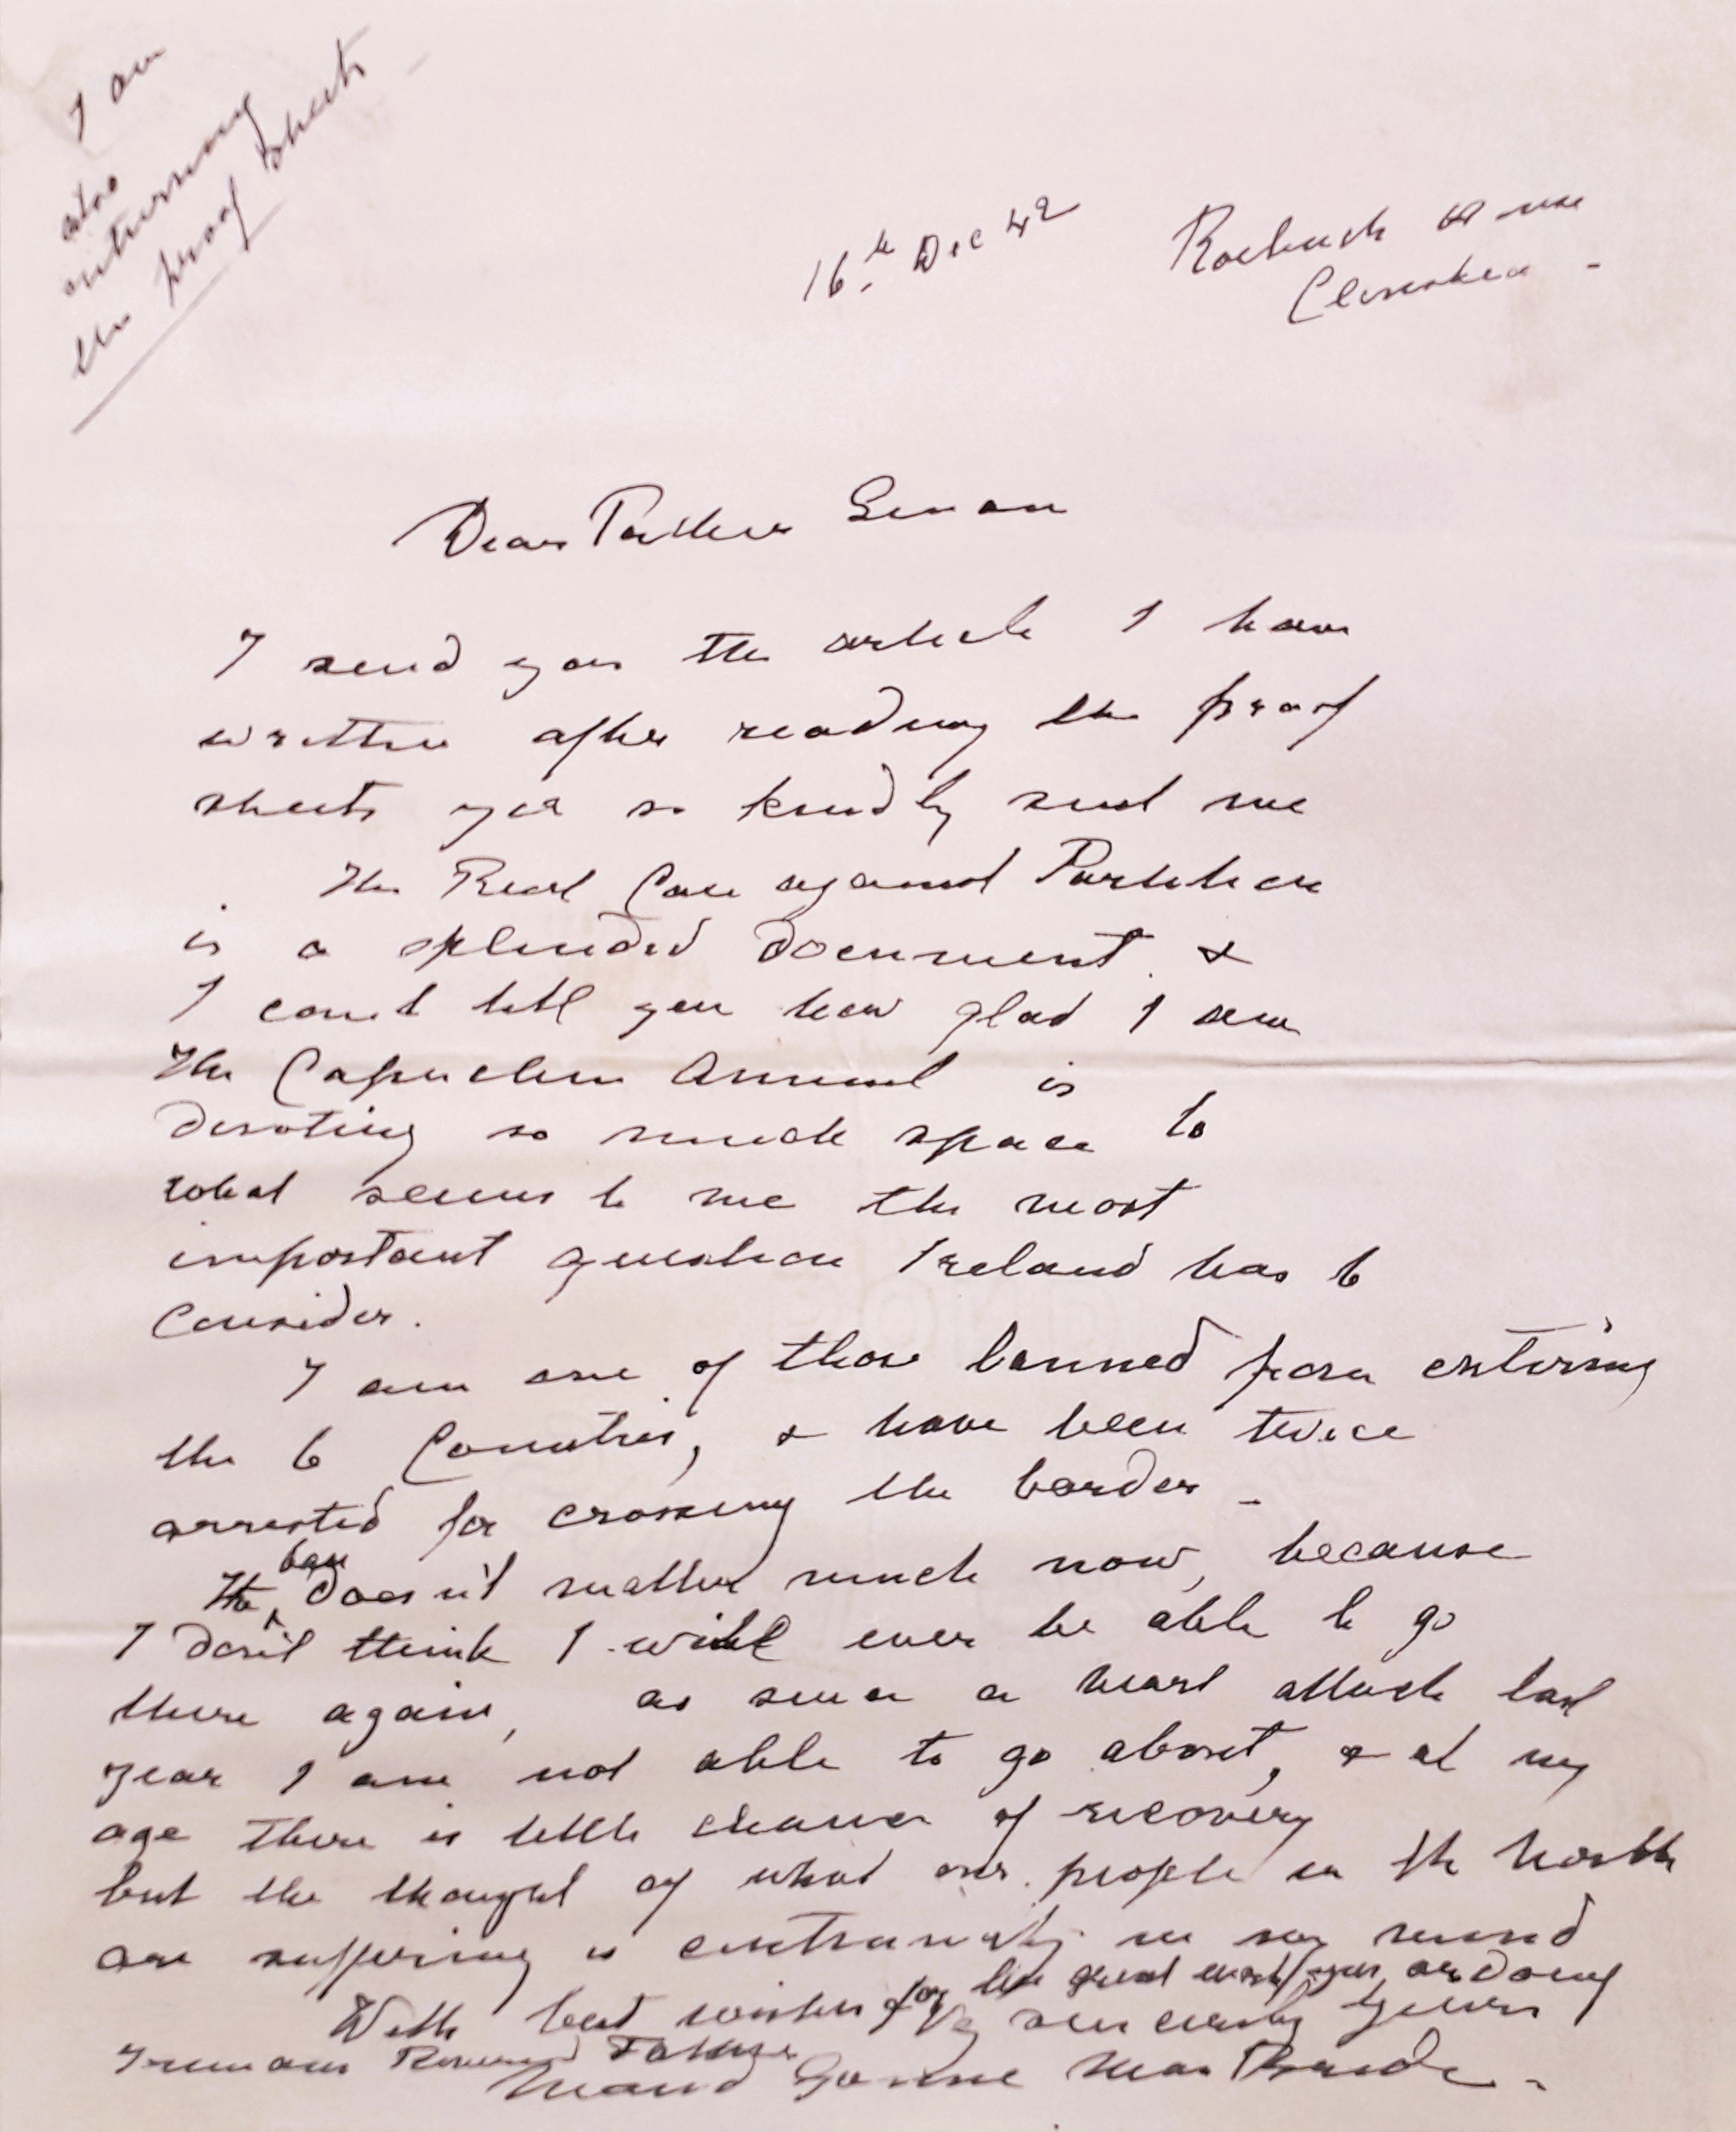 I am
also
returning
the proof sheets
16th Dec 42
Roebuck House
Clonskea
Dear Father Senan
I send you the article I have
written after reading the proof
sheets you so kindly sent me
The Real Case against Partition
is a splendid document &
I can't tell you how glad I am
The Capuchin Annual is
devoting so much space to
what seems to me the most
important question Ireland has to
consider.
I am one of those banned from entering
the 6 Counties, & have been twice
arrested for crossing the border -
The ban doesn't matter much now, because
I don't think I will ever be able to go
there again, as since a heart attack last
year I am not able to go about, & at my
age there is little chance of recovery
but the thought of what our people in the North
are suffering is continually in my mind
With best wishes for the great work you are doing
I remain Reverend Father
Vy sincerely yours
Maud Gonne MacBride -